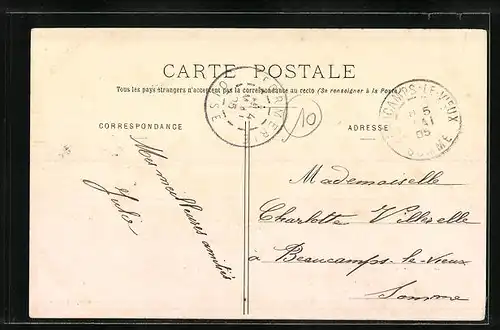 CARTE POSTALE
Tous les pays étrangers n'acceptent pas la correspondance au recto (Se renseigner à la Poste)
CORRESPONDANCE
ADRESSE
OISE
4
05
BEAUCAMPS-LE-VIEUX
5
MAI
05
SOMME
10
Mes meilleures amitiés
Julie
Mademoiselle
Charlotte Villerelle
à Beaucamps-le-Vieux
Somme